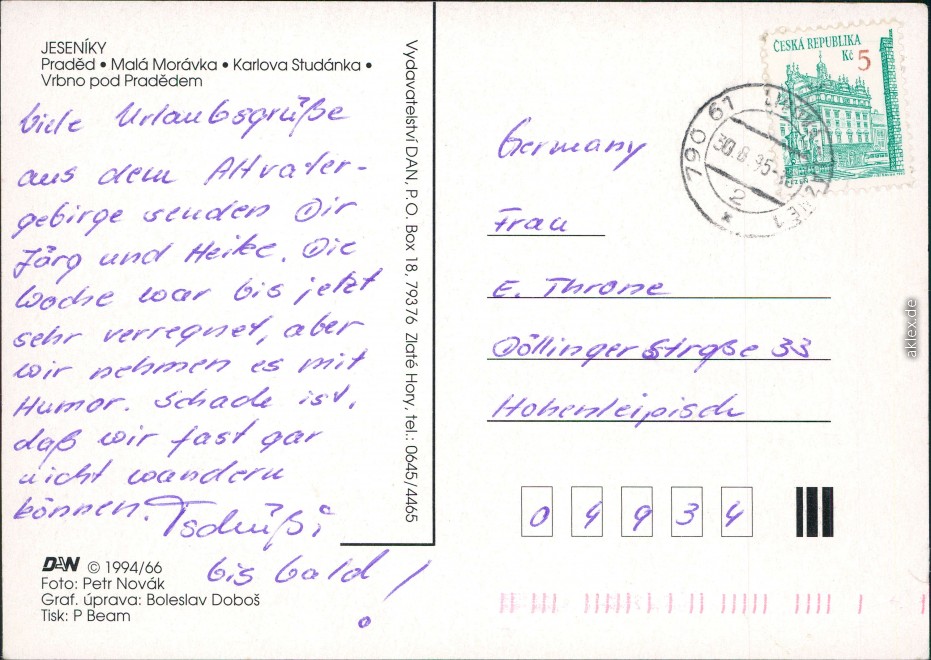 JESENÍKY
Praděd • Malá Morávka • Karlova Studánka •
Vrbno pod Pradědem
Viele Urlaubsgrüße
aus dem Altvater-
gebirge senden Dir
Jörg und Heike. Die
Woche war bis jetzt
sehr verregnet, aber
wir nehmen es mit
Humor. Schade ist,
daß wir fast gar
nicht wandern
können. Tschüßi
bis bald!
DAN © 1994/66
Foto: Petr Novák
Graf. úprava: Boleslav Doboš
Tisk: P Beam
Vydavatelství DAN, P. O. Box 18, 793 76 Zlaté Hory, tel.: 0645/4465
ČESKÁ REPUBLIKA
Kč 5
790 61
30.8.95
2
Germany
Frau
E. Throne
Döllinger Straße 33
Hohenleipisch
0 4 9 3 4
aklex.de